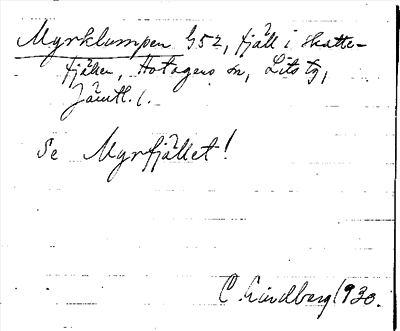 Myrklumpen G52, fjäll i skatte-
fjällen, Hotagens sn, Lits tg,
Jämtl. l.
Se Myrfjället!
C. Lindberg 1930.